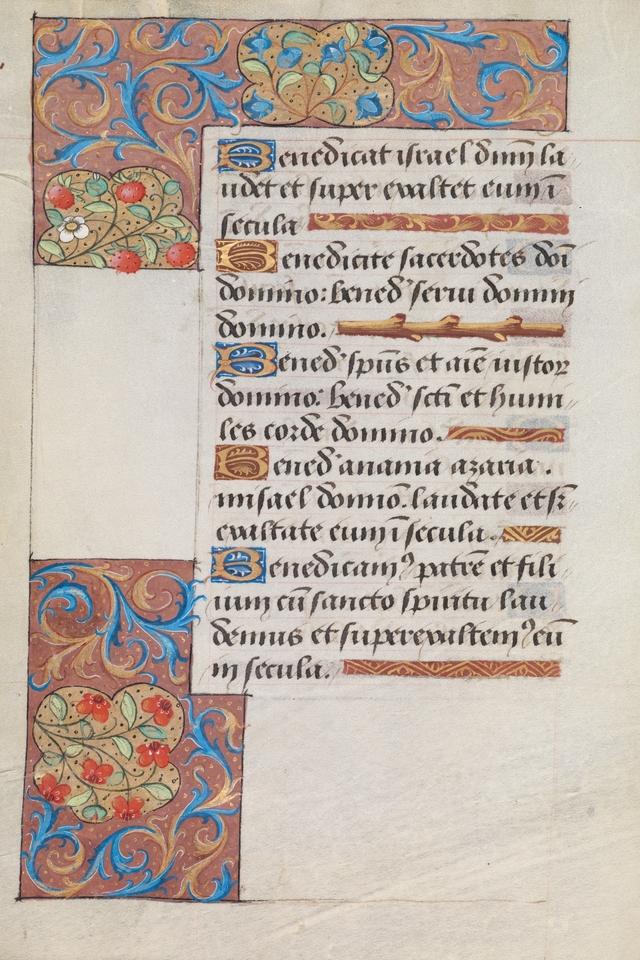 Benedicat israel dñm̃ la
udet et super exaltet eum ĩ
secula
Benedicite sacerdotes doĩ
domino: bened' serui domini
domino.
Bened' sp̃ũs et aĩẽ iustoꝝ
domino: bened' sctĩ et humi
les corde domino.
Bened' anania azaria.
misael domño. laudate et sr̃
exaltate eum ĩ secula.
Benedicamꝰ patrẽ et fili
ium cũ sancto spiritu lau
demus et superexaltemꝰ eũ
in secula.